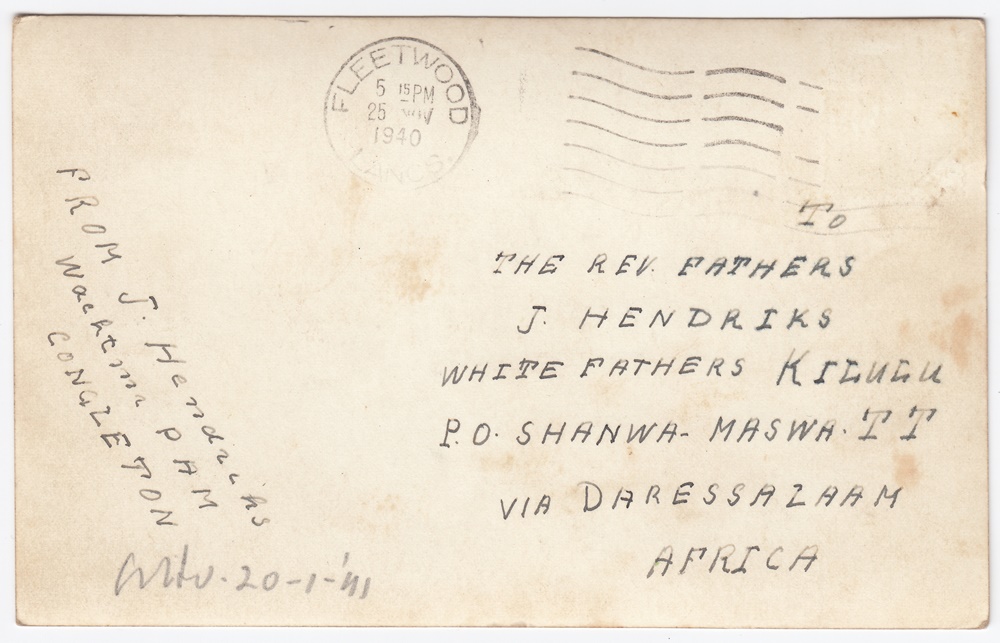 FLEETWOOD
5 15 PM
25 NOV
1940
LANCS
To
THE REV. FATHERS
J. HENDRIKS
WHITE FATHERS KILULU
P.O. SHANWA- MASWA. TT
VIA DARESSALAAM
AFRICA
FROM J. Hendriks
PAM
CONGLETON
20-1-'41